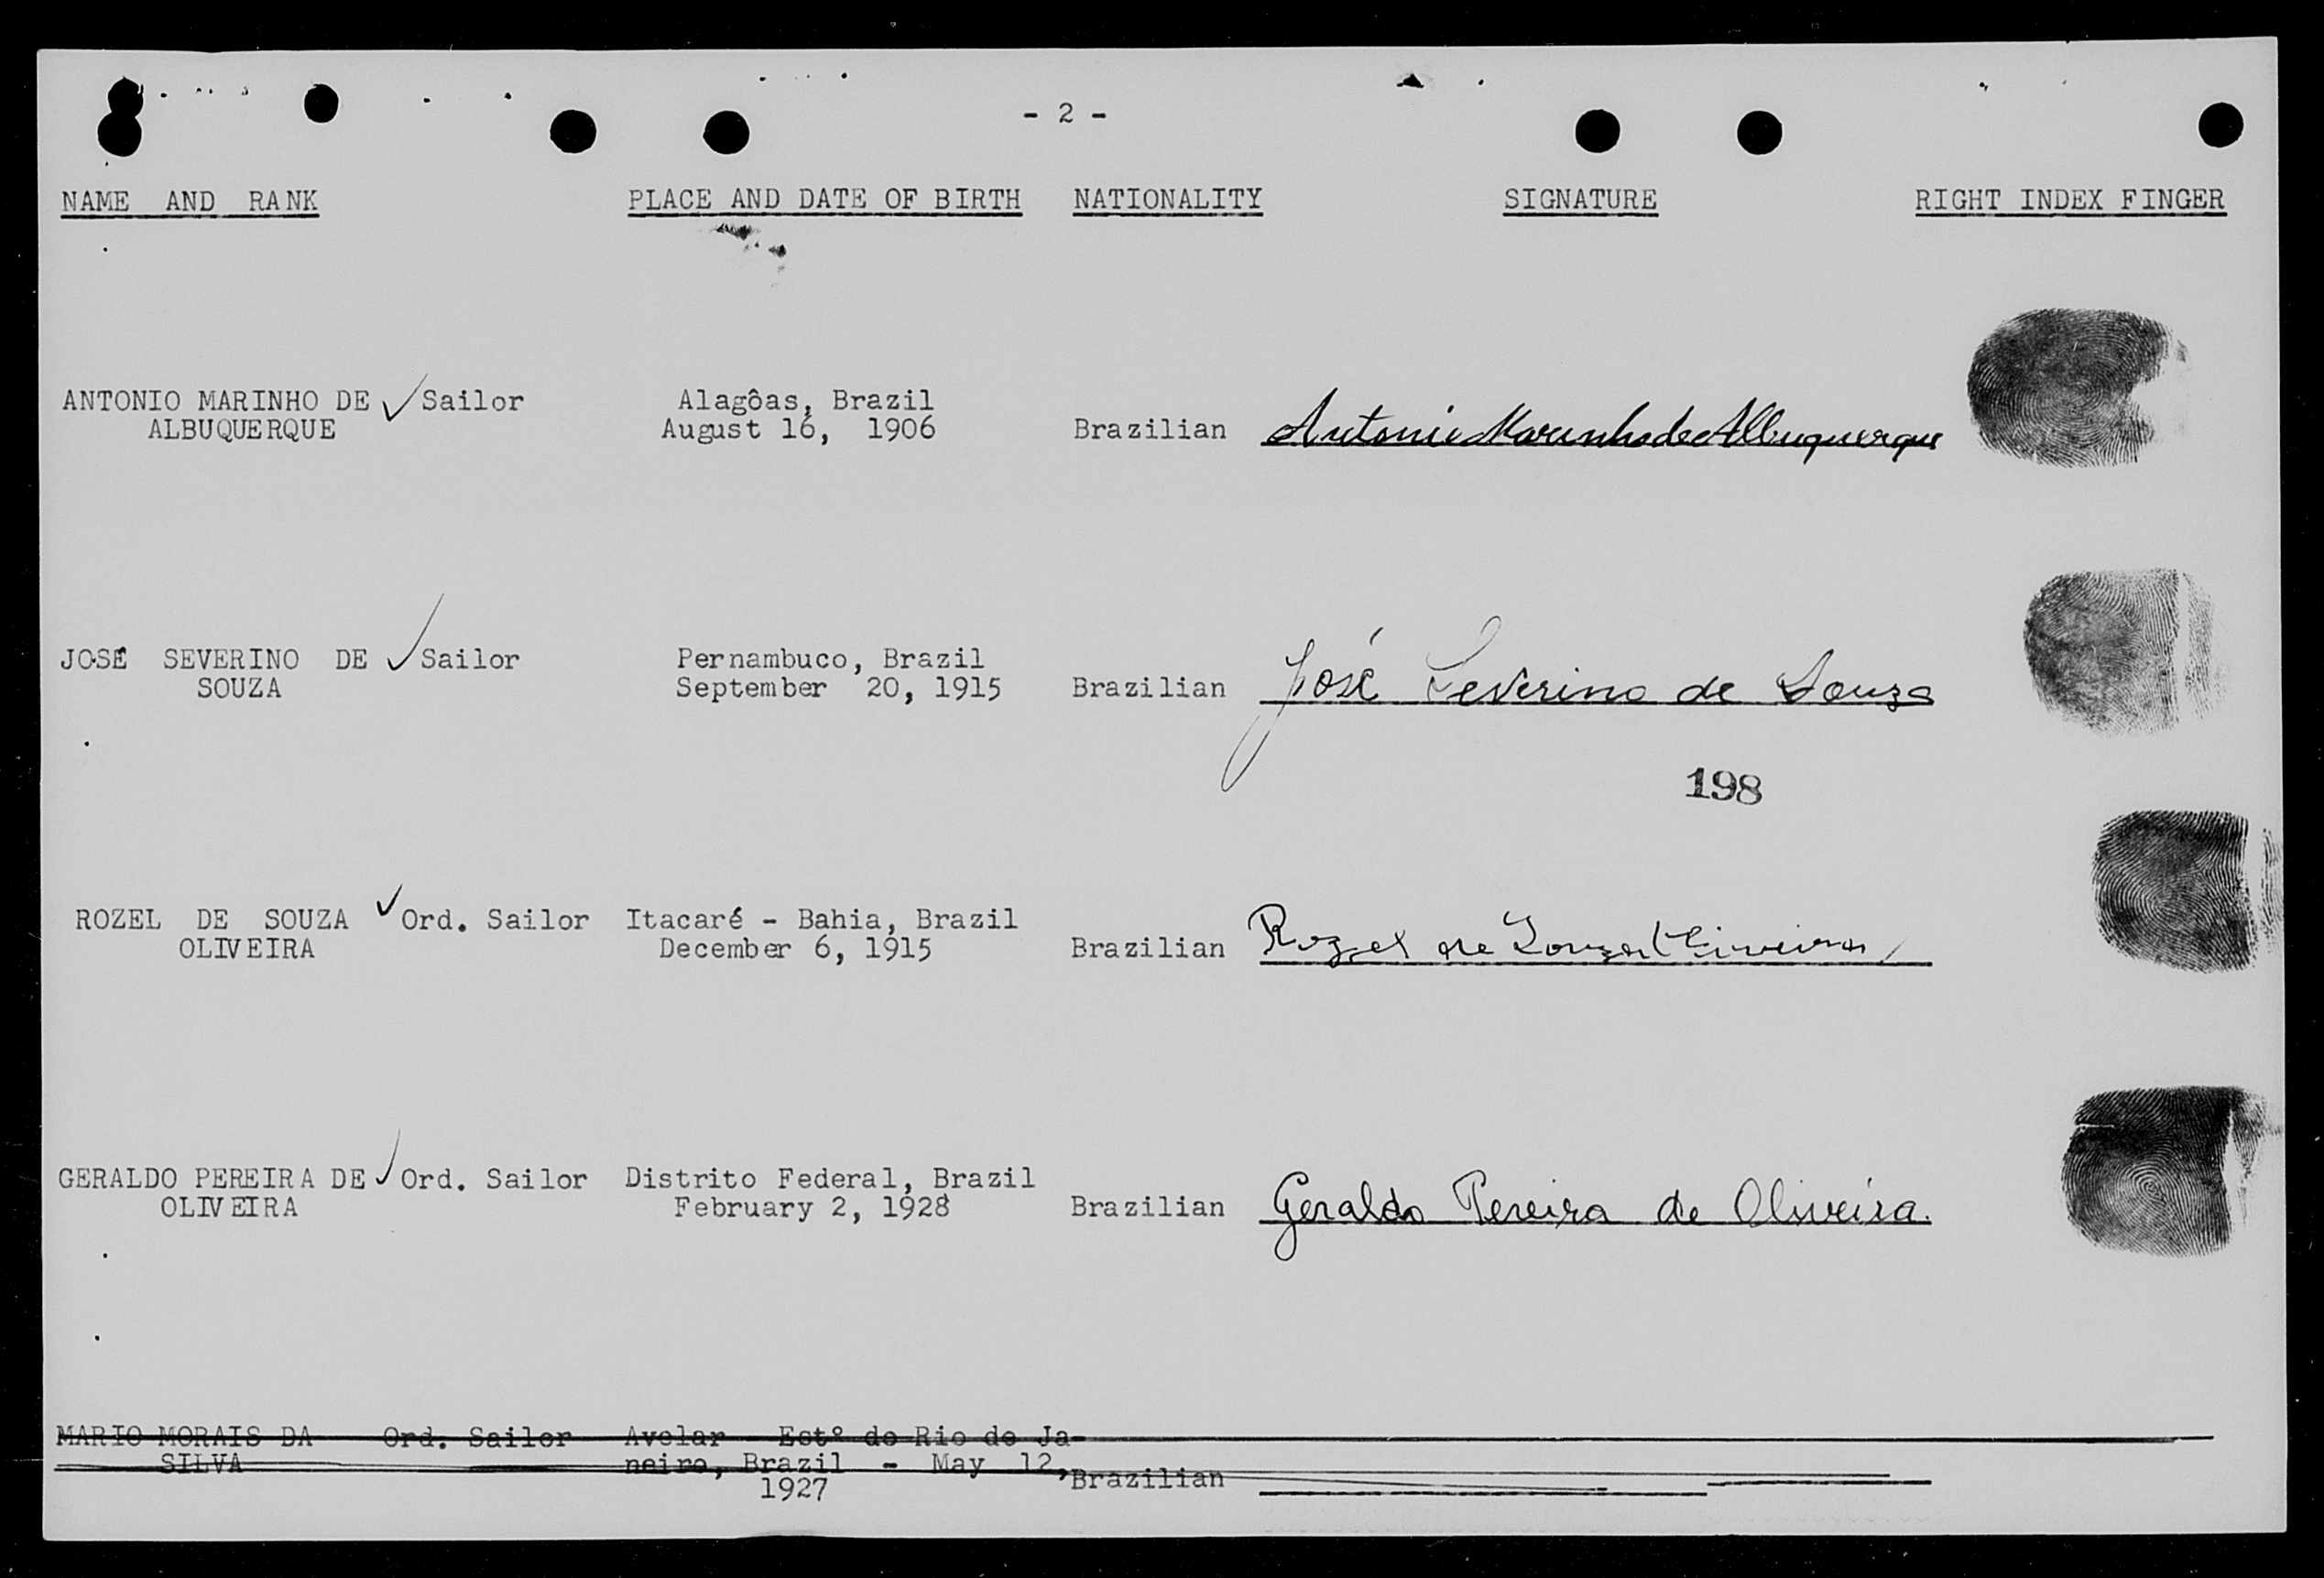 - 2 -
NAME AND RANK PLACE AND DATE OF BIRTH NATIONALITY SIGNATURE RIGHT INDEX FINGER
ANTONIO MARINHO DE ✓ Sailor Alagôas, Brazil
ALBUQUERQUE August 16, 1906 Brazilian Antonio Marinho de Albuquerque
JOSÉ SEVERINO DE ✓ Sailor Pernambuco, Brazil
SOUZA September 20, 1915 Brazilian José Severino de Souza
198
ROZEL DE SOUZA ✓ Ord. Sailor Itacaré - Bahia, Brazil
OLIVEIRA December 6, 1915 Brazilian Rozel de Souza Oliveira
GERALDO PEREIRA DE ✓ Ord. Sailor Distrito Federal, Brazil
OLIVEIRA February 2, 1928 Brazilian Geraldo Pereira de Oliveira.
MARIO MORAIS DA Ord. Sailor Avelar - Estº do Rio de Ja-
SILVA neiro, Brazil - May 12, Brazilian
1927